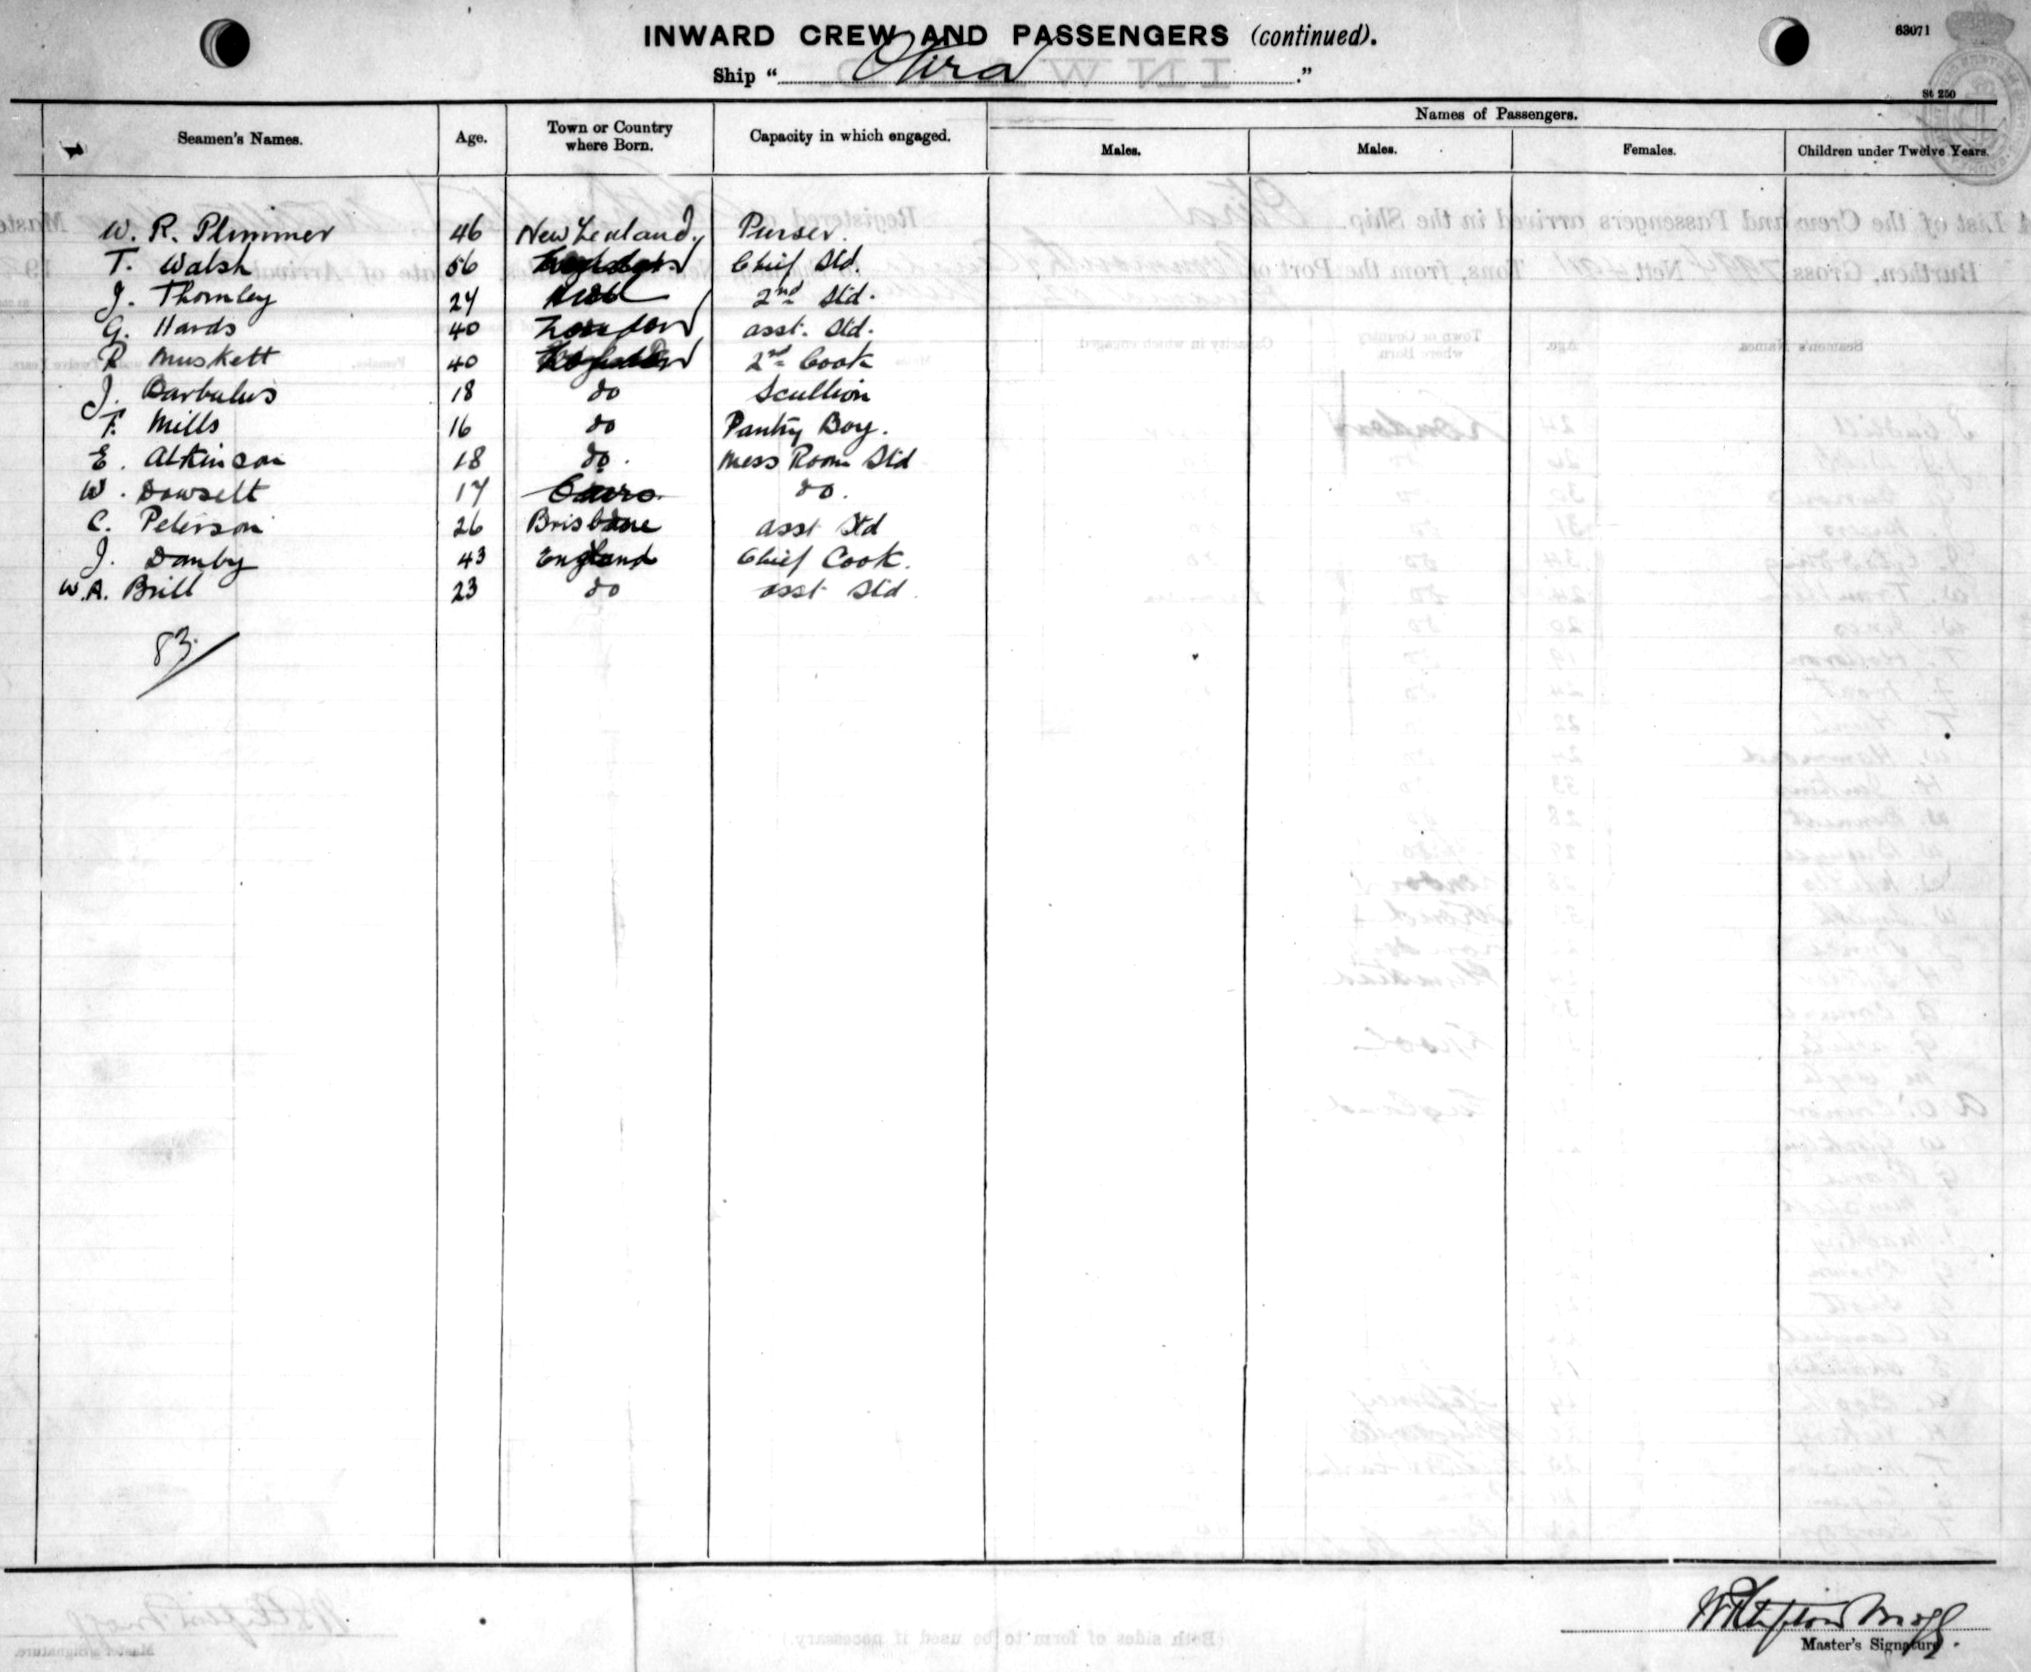 INWARD CREW AND PASSENGERS (continued).
63071
Ship "Otira."
St 250
Seamen's Names. Age. Town or Country where Born. Capacity in which engaged. Names of Passengers.
Males. Males. Females. Children under Twelve Years.
W. R. Plimmer 46 New Zealand. Purser.
T. Walsh 56 Chief Std.
J. Thornley 24 2nd Std.
G. Hards 40 London asst. Std.
R Muskett 40 2nd Cook
J. 18 do Scullion
F. Mills 16 do Pantry Boy.
E. Atkinson 18 do. Mess Room Std
W. Dowsett 17 Cairo. do.
C. Peterson 26 Brisbane asst Std
J. Danby 43 England Chief Cook.
W.A. Brill 23 do asst Std.
83
Master's Signature.